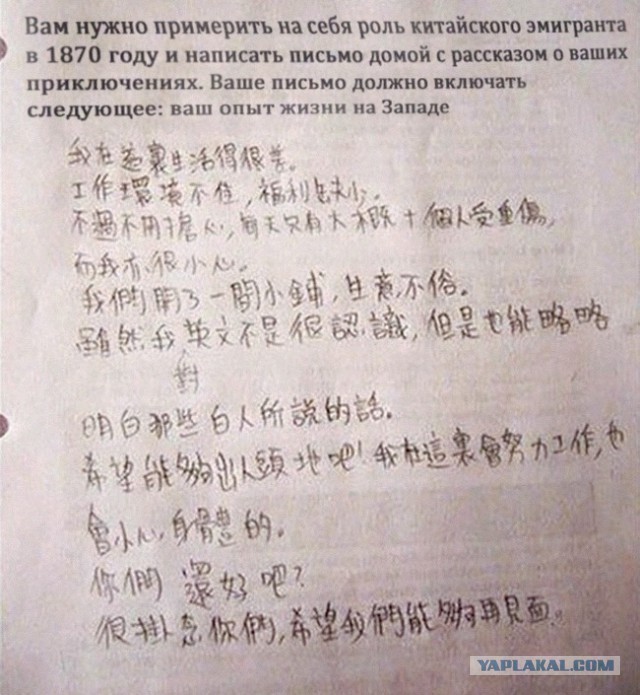 Вам нужно примерить на себя роль китайского эмигранта
в 1870 году и написать письмо домой с рассказом о ваших
приключениях. Ваше письмо должно включать
следующее: ваш опыт жизни на Западе
我在這裏生活得很差。
工作環境不佳，福利缺少。
不過不用擔心，每天只有大概十個人受重傷，
而我亦很小心。
我們開了一間小鋪，生意不俗。
雖然我英文不是很認識，但是也能略略
對
明白那些白人所說的話。
希望能夠出人頭地吧！我在這裏會努力工作，也
會小心身體的。
你們還好吧？
很掛念你們，希望我們能夠再見面。
YAPLAKAL.COM